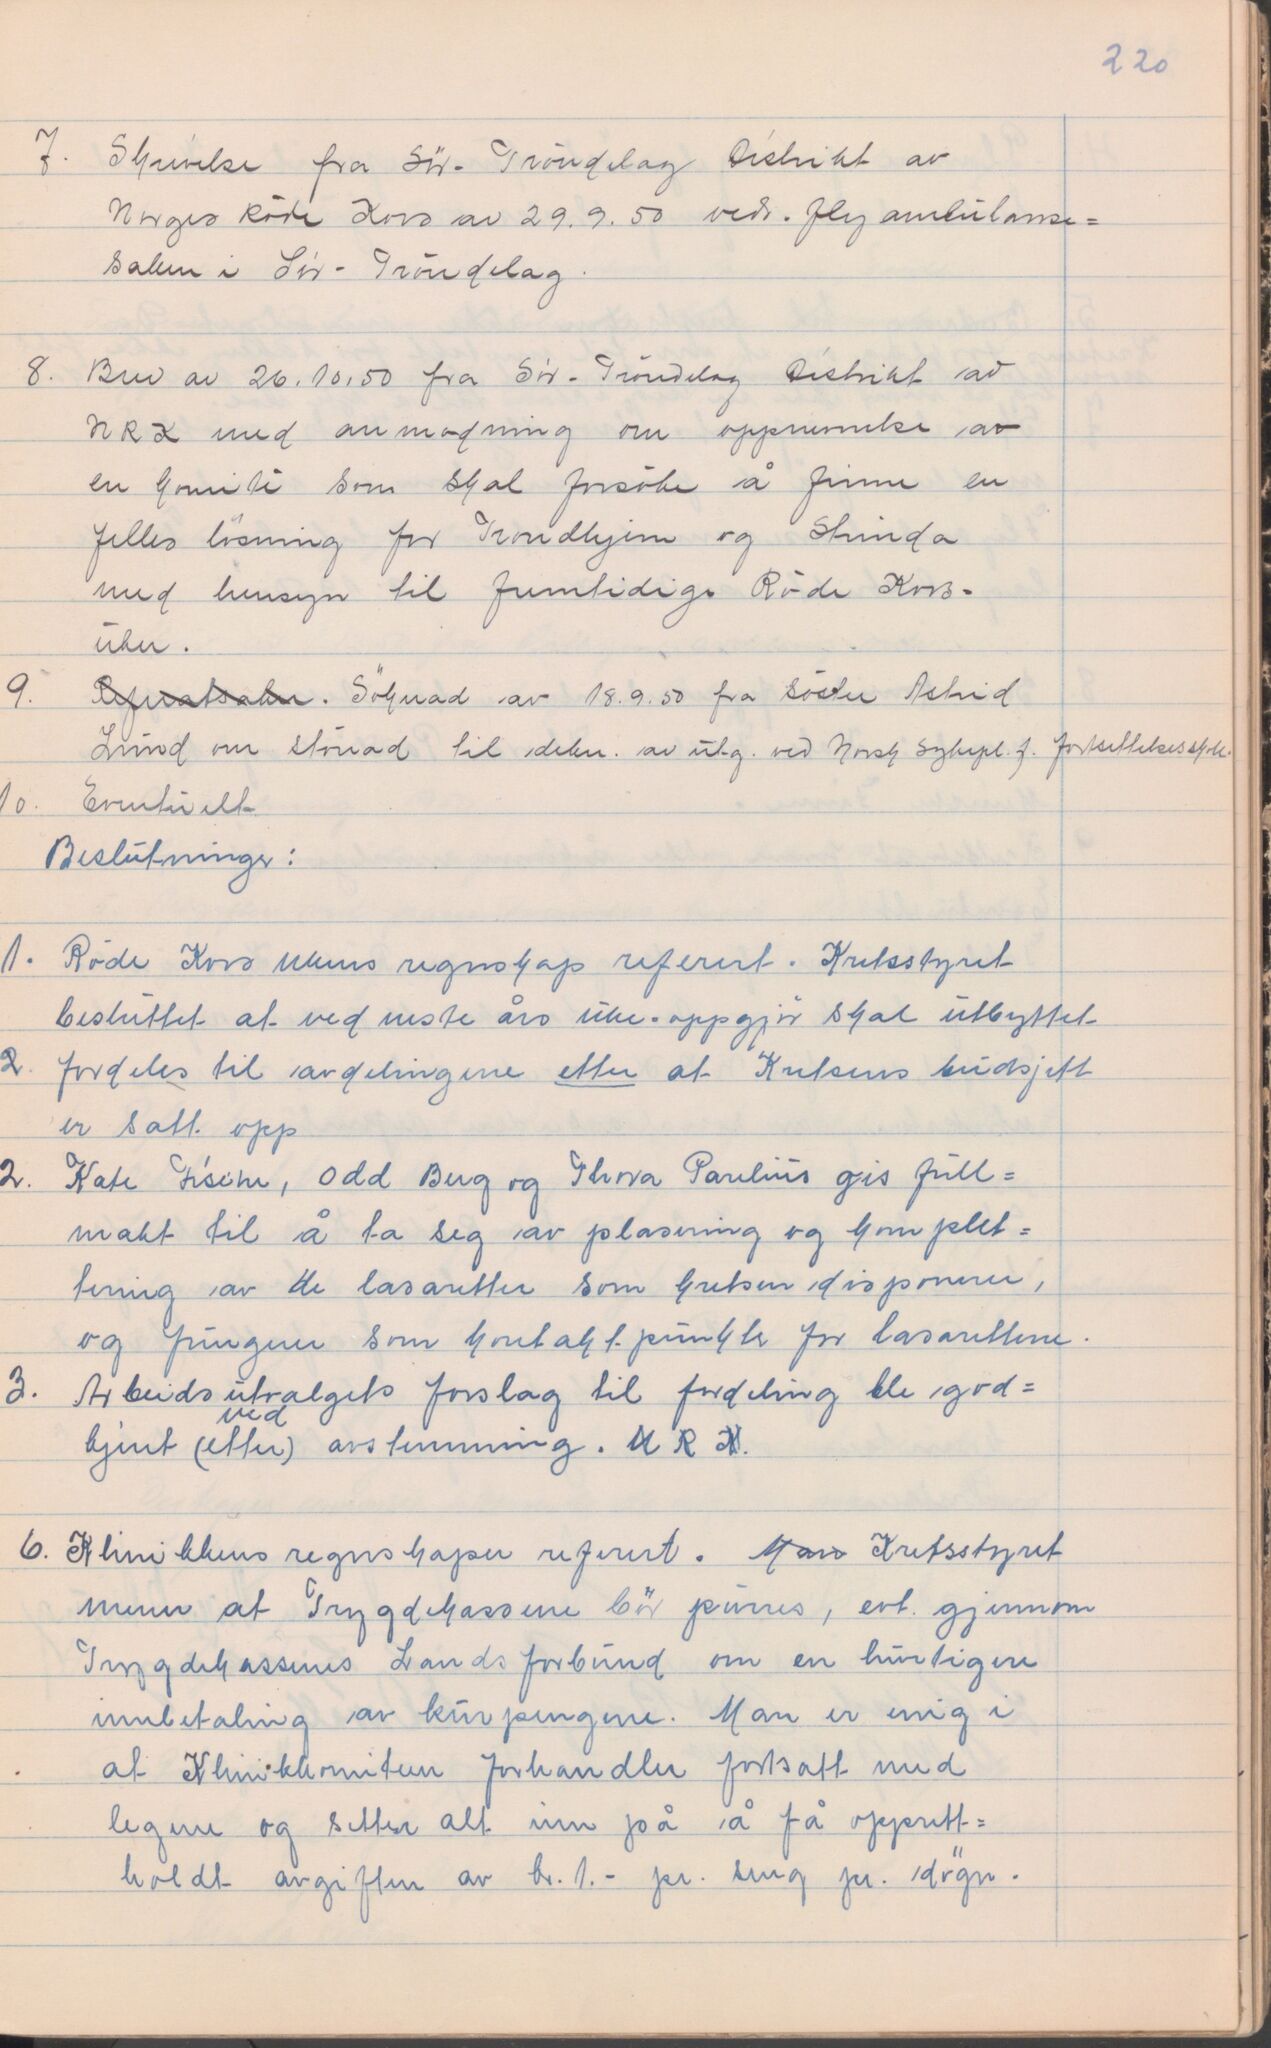 220
7. Skrivelse fra Sör-Tröndelag Distrikt av
Norges Röde Kors av 29.9.50 vedr. flyambulanse=
saken i Sör-Tröndelag.
8. Brev av 26.10.50 fra Sör-Tröndelag Distrikt av
NRK med anmodning om oppnevnelse av
en komité som skal forsöke å finne en
felles lösning for Trondhjem og Strinda
med hensyn til fremtidige Röde Kors-
uker.
9. Referatsaker. Söknad av 18.9.50 fra söster Astrid
Lund om stönad til dekn. av utg. ved Norsk Sykepl.f. fortsettelsesskole.
10. Eventuelt
Beslutninger:
1. Röde Kors Ukens regnskap referert. Kretsstyret
besluttet at ved neste års uke-oppgjör skal utbyttet
2. fordeles til avdelingene etter at Kretsens budsjett
er satt opp
2. Kate Fische, Odd Berg og Thora Parelius gis full=
makt til å ta seg av plasering og komplet=
tering av de lasaretter som kretsen disponerer,
og fungerer som kontaktpunkter for lasarettene.
3. Arbeidsutvalgets forslag til fordeling ble god=
kjent (etter) ved avstemming. N R K.
6. Klinikkens regnskaper referert. Man Kretsstyret
mener at Trygdekassene bör purres, evt. gjennom
Trygdekassenes Landsforbund om en hurtigere
innbetaling av kurpengene. Man er enig i
at Klinikkomiteen forhandler fortsatt med
legene og setter alt inn på å få opprett=
holdt avgiften av kr. 1.- pr. seng pr. dögn.